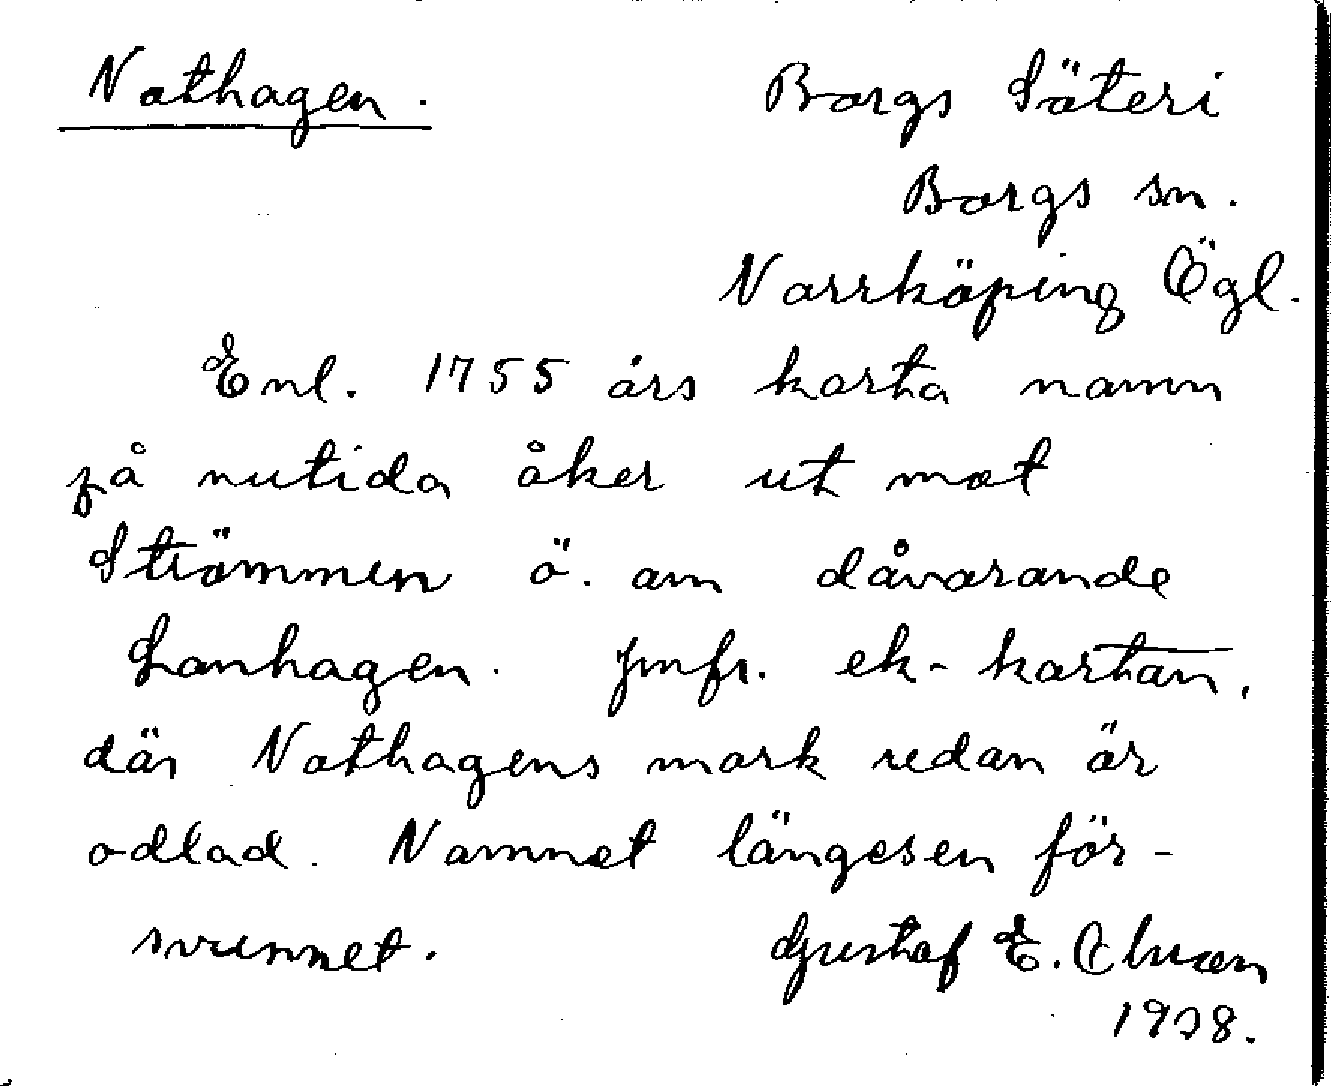 Nothagen.
Borgs Säteri
Borgs sn.
Norrköping Ögl.
Enl. 1755 års karta namn
på nutida åker ut mot
Strömmen ö. om dåvarande
Lonhagen. Jmfr. ek-kartan,
där Nothagens mark redan är
odlad. Namnet längesen för-
svunnet. Gustaf E. Olsson